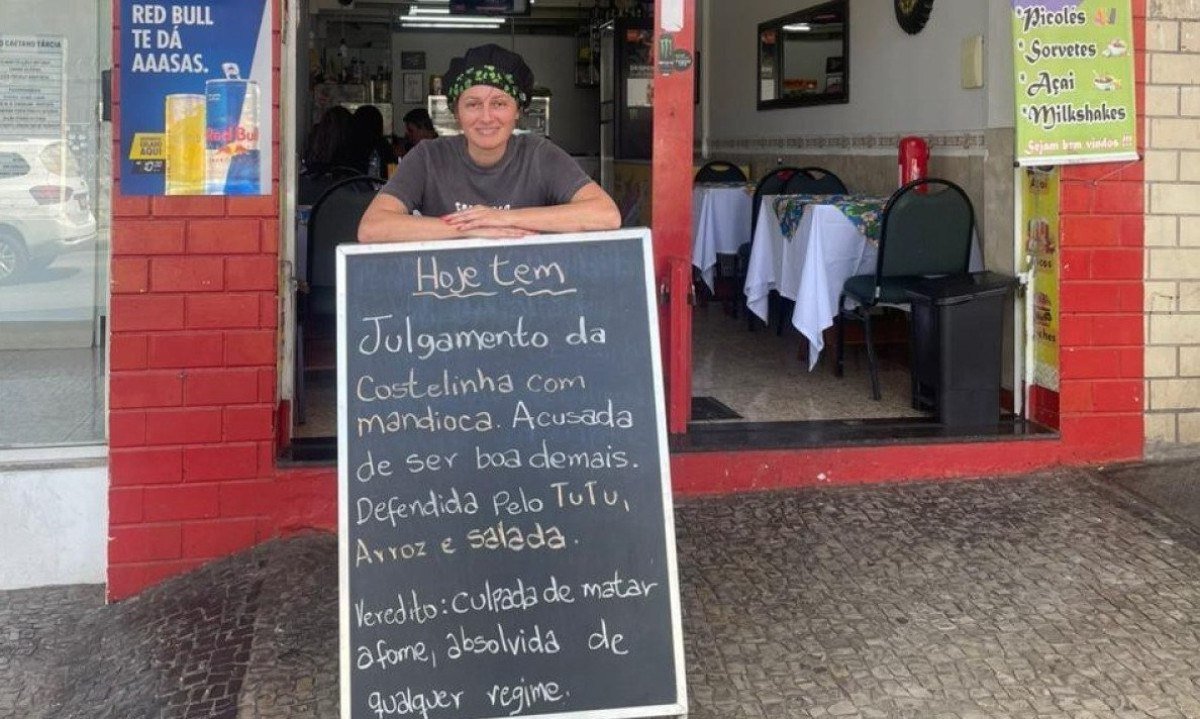 RED BULL
TE DÁ
AAASAS.
Red Bull
Hoje tem
Julgamento da
Costelinha com
mandioca. Acusada
de ser boa demais.
Defendida Pelo TuTu,
Arroz e salada.
Veredito: culpada de matar
a fome, absolvida de
qualquer regime.
*Picolés
*Sorvetes
*Açai
*Milkshakes
Sejam bem vindos!!!
Açai